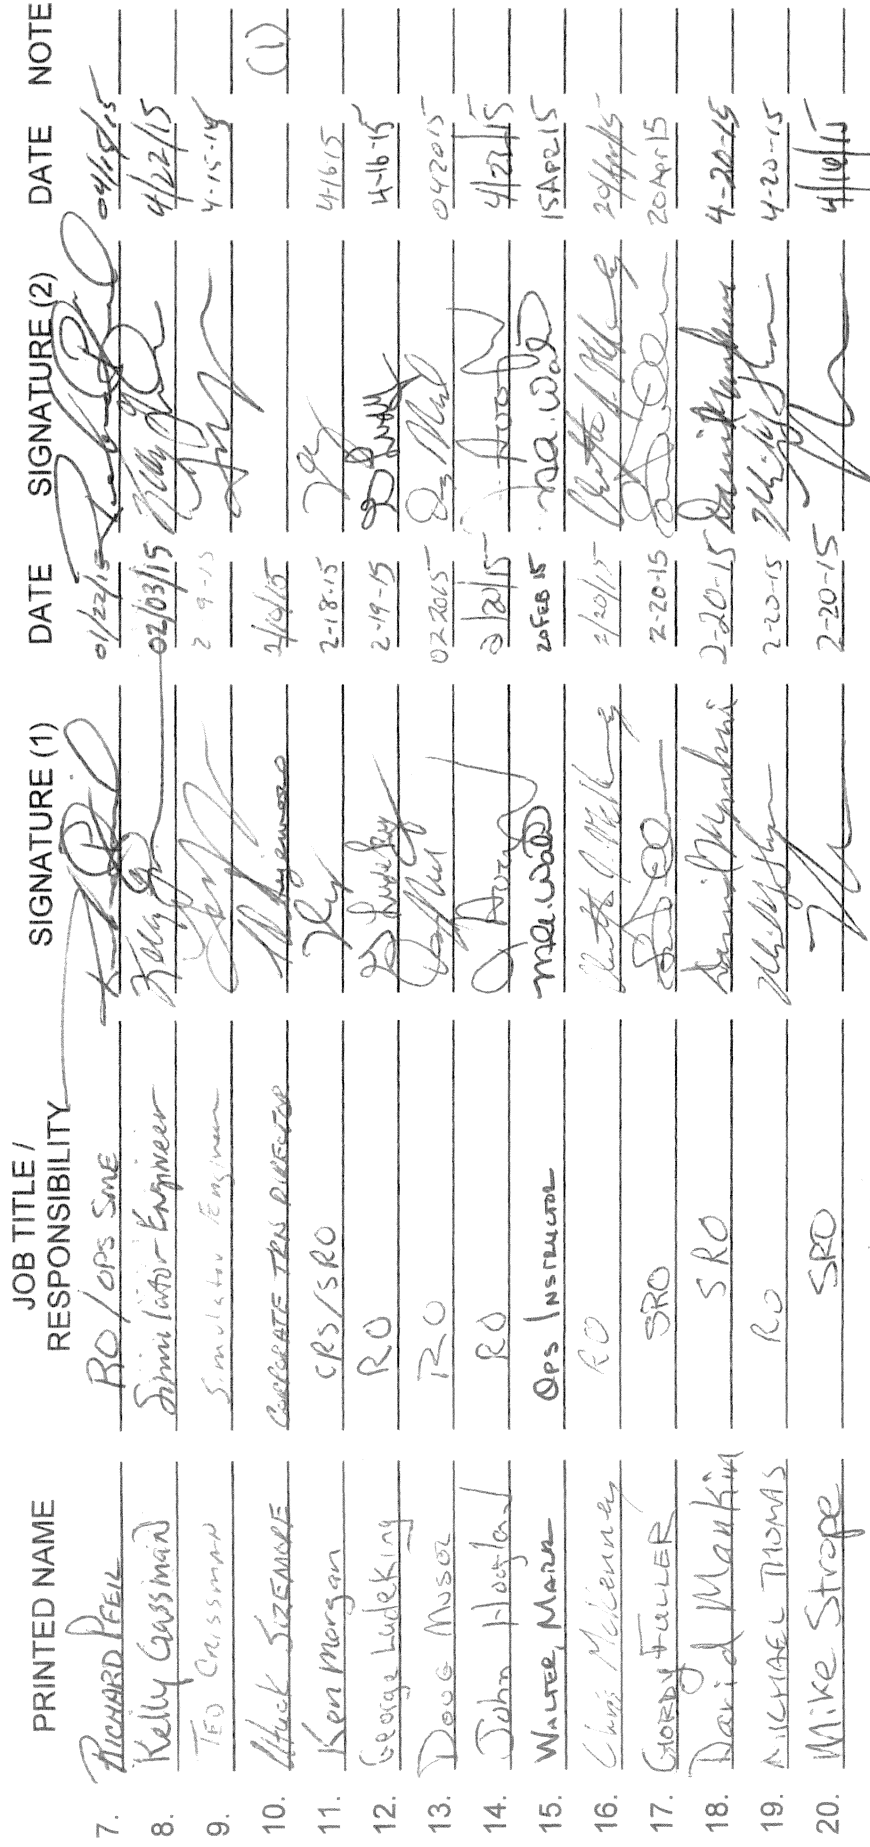 PRINTED NAME JOB TITLE / RESPONSIBILITY SIGNATURE (1) DATE SIGNATURE (2) DATE NOTE
7. RICHARD PFEIL RO/OPS SME 01/22/15 04/15/15
8. Kelly Gassman Simulator Engineer 02/03/15 4/22/15
9. TED CRISSMAN Simulator Engineer 2-9-15 4-15-15
10. Chuck SIZEMORE CORPORATE TRN DIRECTOR 2/10/15 (1)
11. Ken Morgan CRS/SRO 2-18-15 4-16-15
12. George Ludeking RO 2-19-15 4-16-15
13. DOUG MUSSER RO 022015 042015
14. John Hoagland RO 2/20/15 4/22/15
15. WALTER, MARK OPS INSTRUCTOR M.A. Walt 20 FEB 15 M.A. Walt 15 APR 15
16. Chris McKenney RO 2/20/15 20/Apr/15
17. GORDY FULLER SRO 2-20-15 20 Apr 15
18. David Mankin SRO 2-20-15 4-20-15
19. MICHAEL THOMAS RO 2-20-15 4-20-15
20. Mike Strope SRO 2-20-15 4/16/15